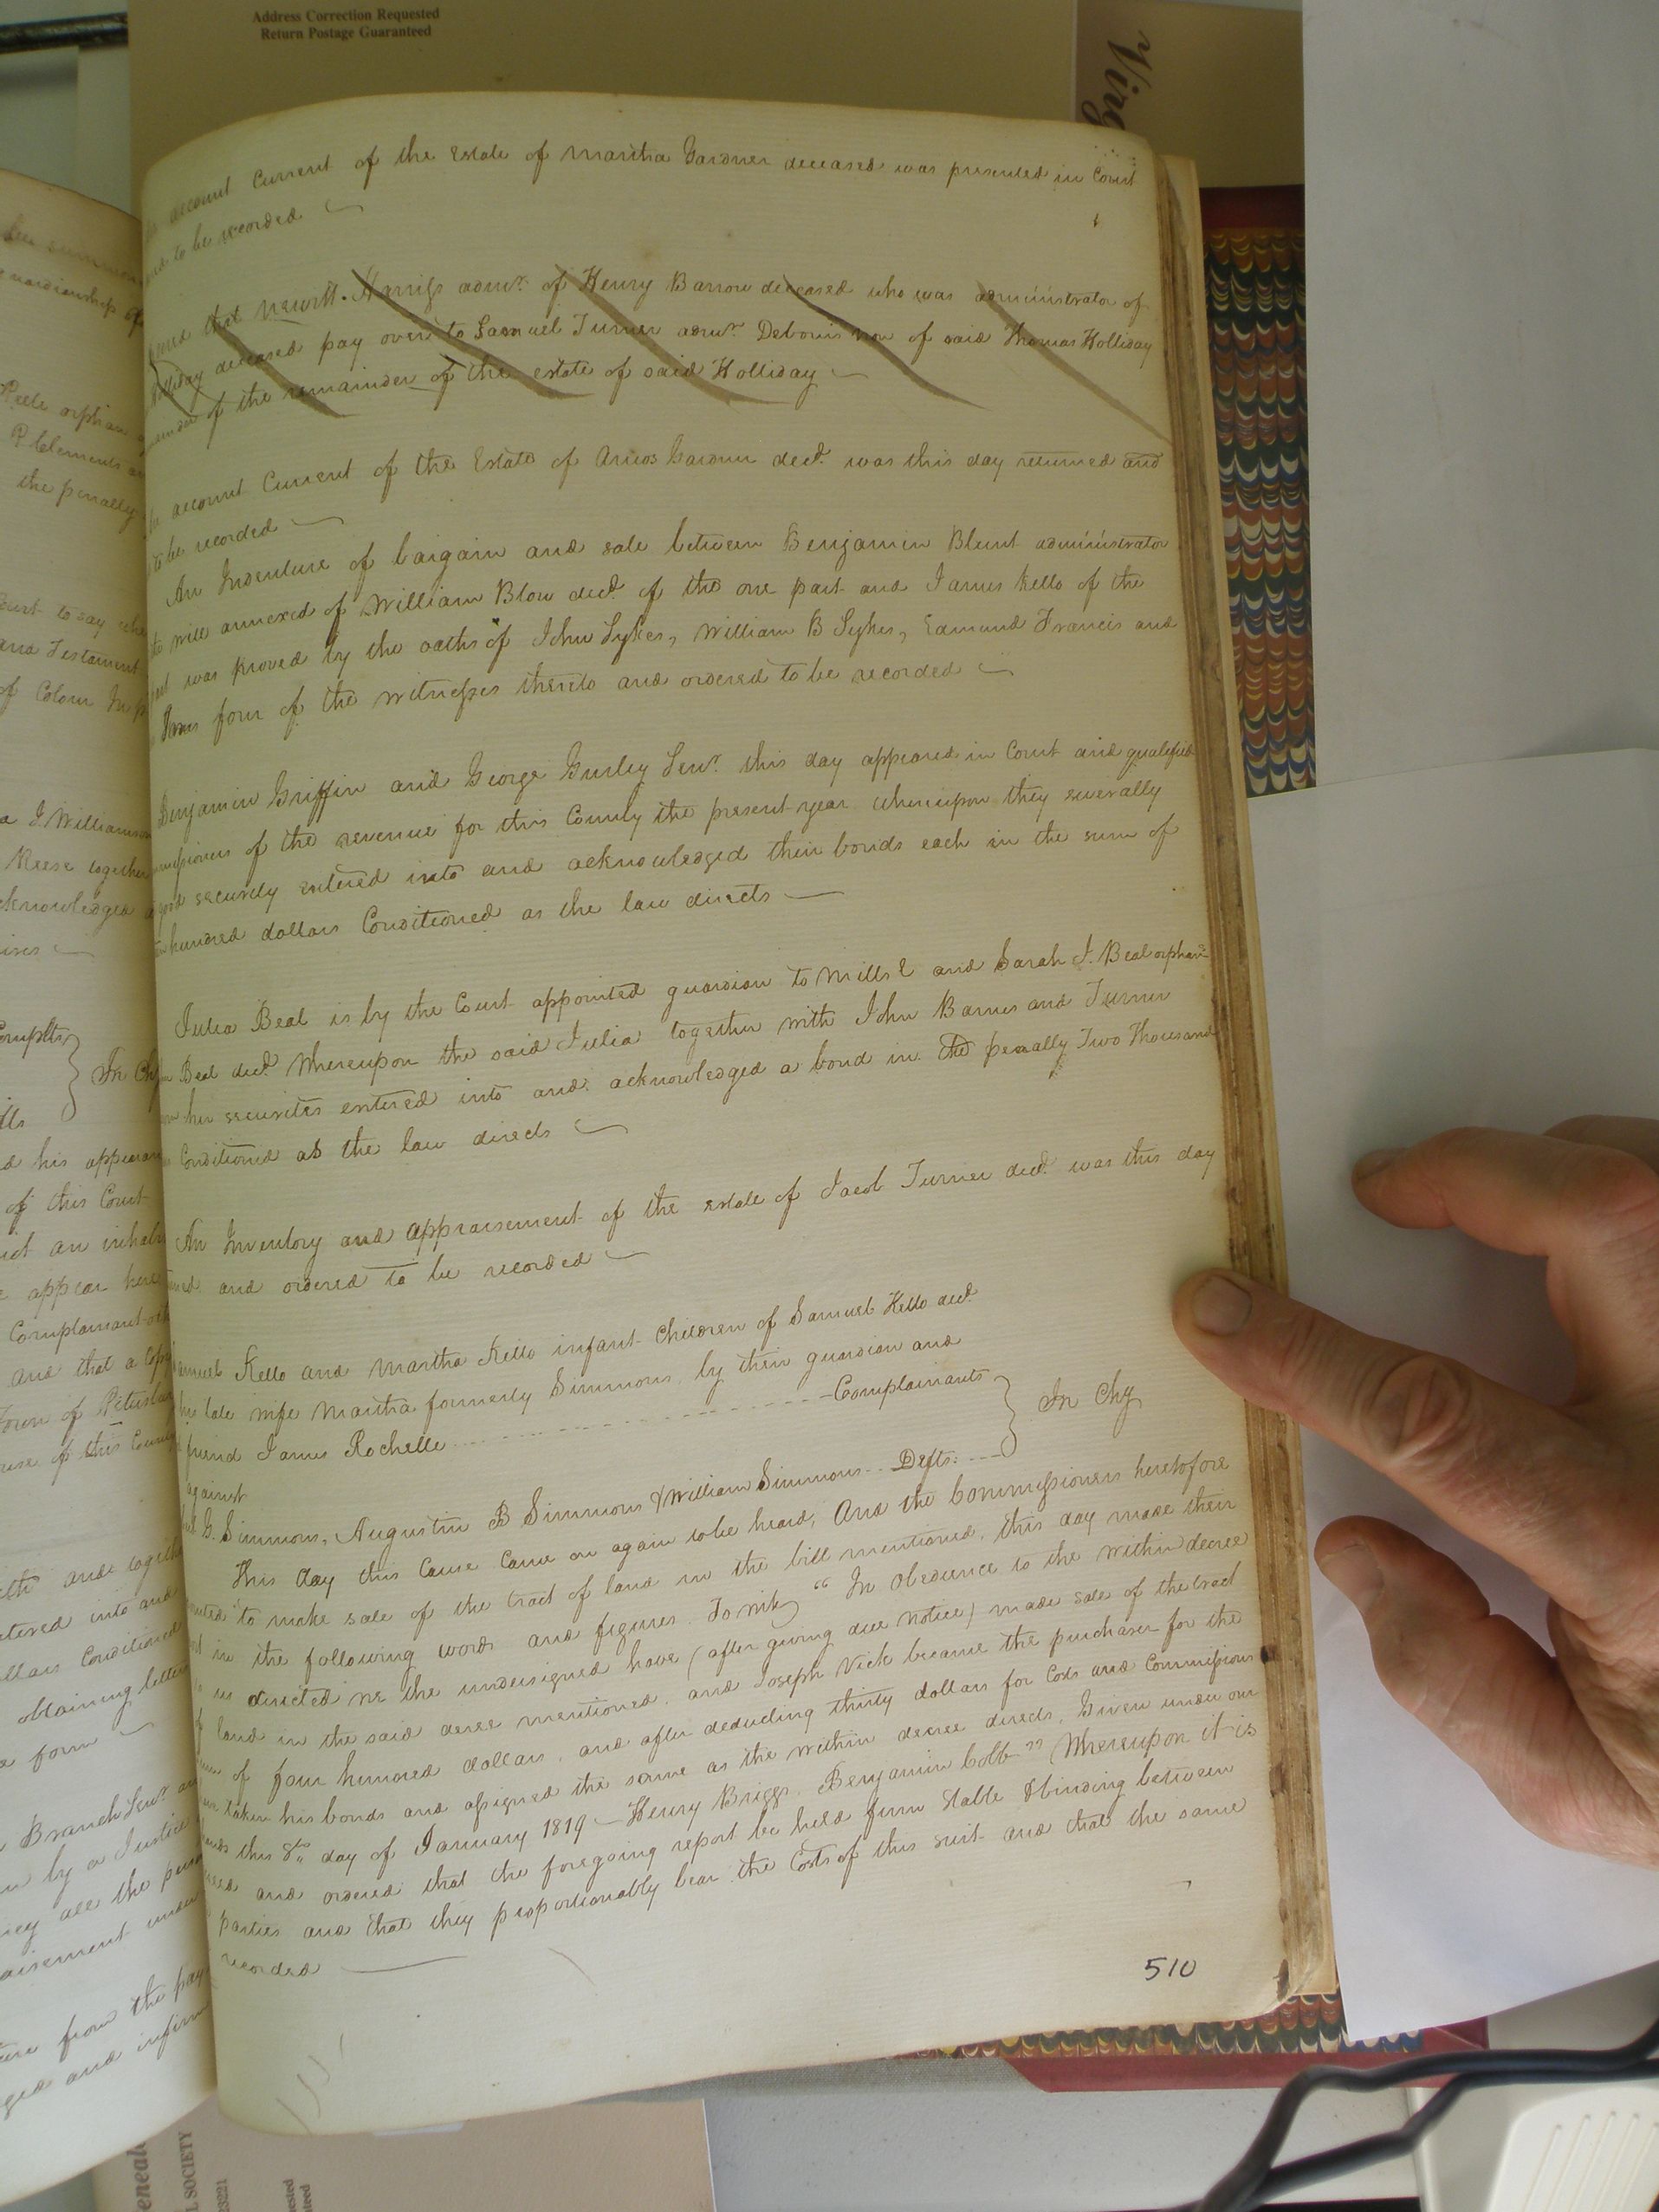 Address Correction Requested
Return Postage Guaranteed
Virg
account Current of the Estate of Martha Gardner deceased was presented in Court
to be recorded
that Newitt Harriss admr. of Henry Barrow deceased who was administrator of
Holliday deceased pay over to Samuel Turner admr. Debonis non of said Thomas Holliday
of the remainder of the estate of said Holliday
account Current of the Estate of Amos Gardner decd. was this day returned and
to be recorded
An Indenture of bargain and sale between Benjamin Blunt administrator
will annexed of William Blow decd. of the one part and James Kello of the
was proved by the oaths of John Sykes, William B Sykes, Edmund Francis and
four of the witnesses thereto and ordered to be recorded
Benjamin Griffin and George Gurley Senr. this day appeared in Court and qualified
of the revenue for this County the present year whereupon they severally
security entered into and acknowledged their bonds each in the sum of
hundred dollars Conditioned as the law directs
Julia Beal is by the Court appointed guardian to Mills E and Sarah J. Beal orphans
Beal decd. Whereupon the said Julia together with John Barnes and Turner
her securities entered into and acknowledged a bond in the penalty Two Thousand
Conditioned as the law directs
An Inventory and appraisement of the estate of Jacob Turner decd. was this day
and ordered to be recorded
Samuel Kello and Martha Kello infant Children of Samuel Kello decd.
his late wife Martha formerly Simmons, by their guardian and
friend James Rochelle Complainants
In Chy
against
G. Simmons, Augustin B Simmons & William Simmons Defts.
This day this Cause Came on again to be heard, And the Commissioners heretofore
to make sale of the tract of land in the bill mentioned, this day made their
in the following words and figures. Towit, "In Obedience to the within decree
to us directed we the undersigned have (after giving due notice) made sale of the tract
of land in the said decree mentioned, and Joseph Vick became the purchaser for the
of four hundred dollars, and after deducting thirty dollars for Costs and Commissions
taken his bonds and assigned the same as the within decree directs, Given under our
hands this 8th day of January 1819 — Henry Briggs, Benjamin Cobb" Whereupon it is
and ordered that the foregoing report be held firm Stable & binding between
parties and that they proportionably bear the Costs of this suit and that the same
recorded
510
guardianship of
orphan
P Clements
the penalty
to say
and Testament
of Colour
J Williamson
Reese together
acknowledged
Complts
In Chy
his appearance
of this Court
appear here
Complainant
and that a Copy
Town of
of this County
and together
entered into and
Conditioned
obtaining letters
form
Branch Senr.
by a Justice
all the
under
from the
and
SOCIETY
23221